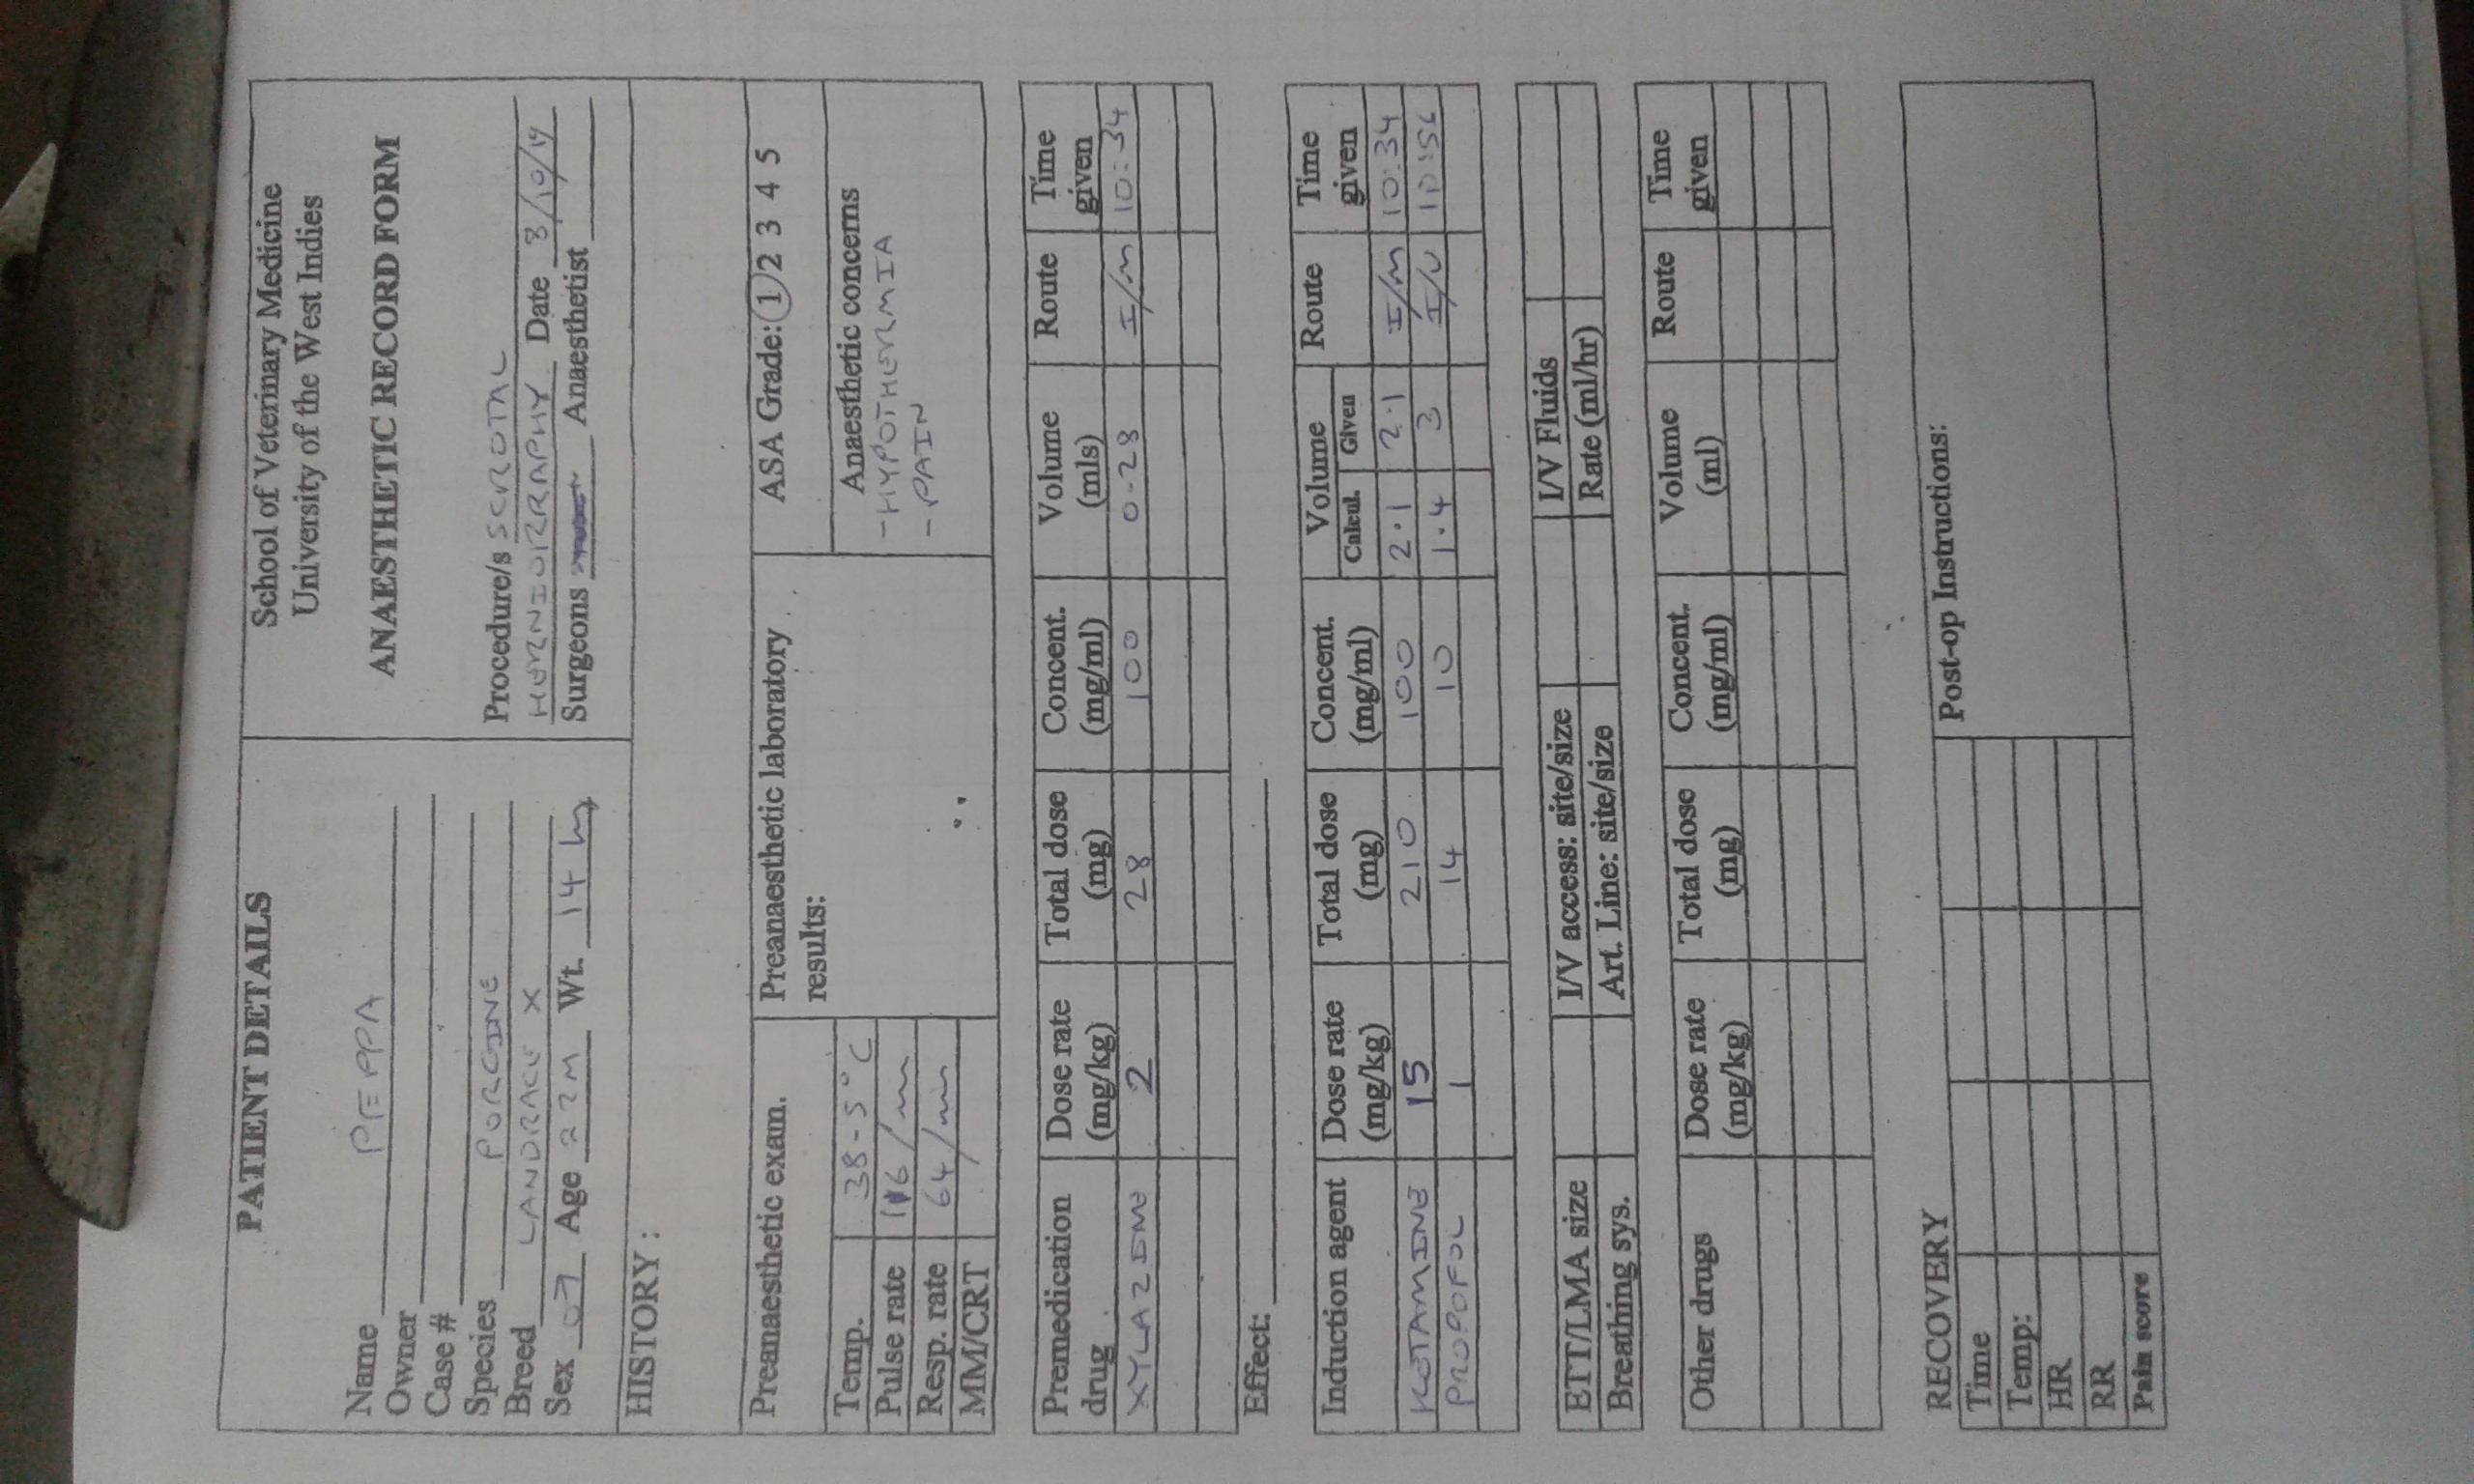 PATIENT DETAILS
Name PEPPA
Owner
Case #
Species PORCINE
Breed LANDRACE X
Sex Age 22M Wt. 14 kg
School of Veterinary Medicine
University of the West Indies
ANAESTHETIC RECORD FORM
Procedure/s SCROTAL
HERNIORRAPHY Date 8/10/14
Surgeons Anaesthetist
HISTORY:
Preanaesthetic exam.
Temp. 38-5°C
Pulse rate 116/min
Resp. rate 64/min
MM/CRT
Preanaesthetic laboratory
results:
ASA Grade: 1 2 3 4 5
Anaesthetic concerns
-HYPOTHERMIA
-PAIN
Premedication drug Dose rate (mg/kg) Total dose (mg) Concent. (mg/ml) Volume (mls) Route Time given
XYLAZINE 2 28 100 0-28 I/M 10:34
Effect:
Induction agent Dose rate (mg/kg) Total dose (mg) Concent. (mg/ml) Volume Calcul. Given Route Time given
KETAMINE 15 210 100 2.1 2.1 I/M 10:34
PROPOFOL 1 14 10 1.4 3 I/V 10:56
ETT/LMA size I/V access: site/size I/V Fluids
Breathing sys. Art. Line: site/size Rate (ml/hr)
Other drugs Dose rate (mg/kg) Total dose (mg) Concent. (mg/ml) Volume (ml) Route Time given
RECOVERY
Time
Temp:
HR
RR
Pain score
Post-op Instructions: